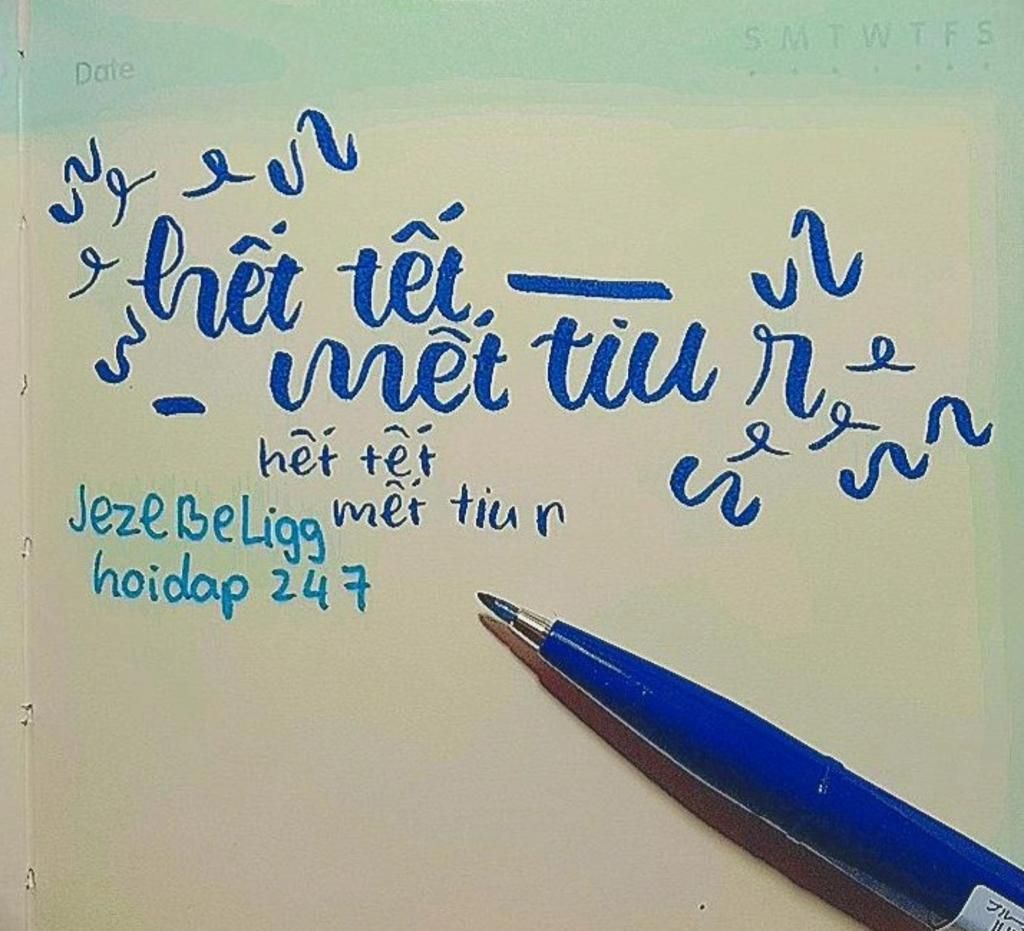 S M T W T F S
Date
hết tết —
- mết tiu r
hết tết
mết tiu r
JezeBeLigg
hoidap 247
ブルー